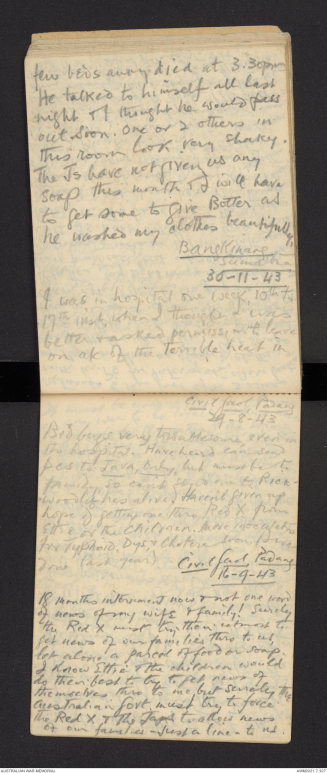 few beds away died at 3.30pm
He talked to himself all last
night & I thought he would pass
out soon. One or 2 others in
this room look very shaky.
The Js have not given us any
soap this month & I will have
to get some to give Botter as
he washed my clothes beautifully.
Bangkinang
Sumatra
30-11-43
I was in hospital one week, 10th to
17th inst, when I thought I was
better & asked permission to leave
on a/c of the terrible heat in
Civil Gaol Padang
29-8-43
Bed bugs very troublesome even in
the hospital. Have heard can send
p.cs to Java, only, but must be to
family. So can't send one to
Haven't given up
hope of getting one thro Red X from
Ettie or the children. More inoculations
for Typhoid, Dys. & Cholera soon. Were
done last year
Civil Gaol Padang
16-9-43
18 months internment now & not one word
of news of my wife & family! Surely
the Red X must try their utmost to
get news of our families thro to us,
let alone a parcel of food or soap.
I know Ettie & the children would
do their best to try to get news of
themselves thro to me, but surely the
Australian Govt must try to force
the Red X & the Japs to allow news
of our families - Just a line to us.
AUSTRALIAN WAR MEMORIAL